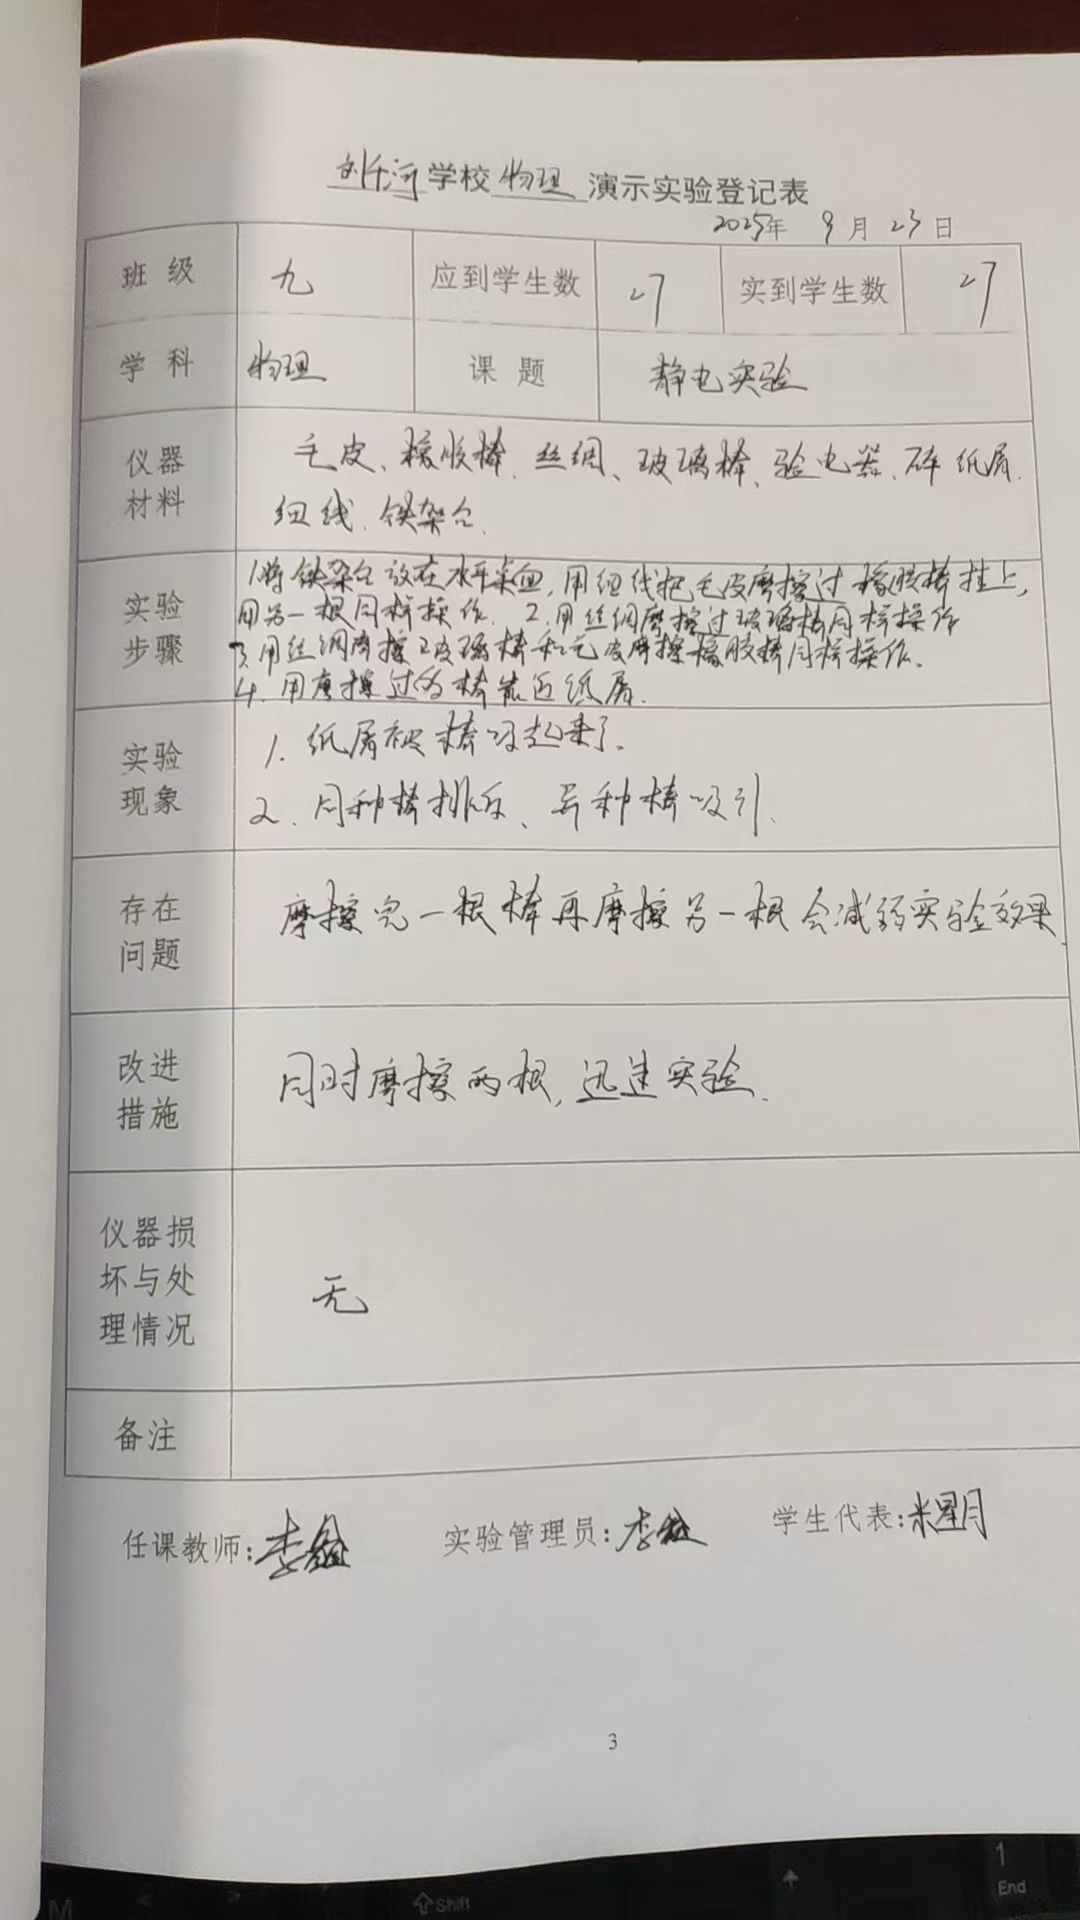 学校物理演示实验登记表
2025年 9 月 23 日
班 级 九 应到学生数 27 实到学生数 27
学 科 物理 课 题 静电实验
仪器材料 毛皮、橡胶棒、丝绸、玻璃棒、验电器、碎纸屑、
细线、铁架台.
实验步骤 1.将铁架台放在水平桌面,用细线把毛皮摩擦过橡胶棒挂上,
用另一根同样操作. 2.用丝绸摩擦过玻璃棒同样操作
3.用丝绸摩擦玻璃棒和毛皮摩擦橡胶棒同样操作.
4.用摩擦过的棒靠近纸屑.
实验现象 1.纸屑被棒吸起来了.
2.同种棒排斥、异种棒吸引.
存在问题 摩擦完一根棒再摩擦另一根会减弱实验效果.
改进措施 同时摩擦两根,迅速实验.
仪器损坏与处理情况 无
备注
任课教师:李 实验管理员:李 学生代表:米星月
3
Shift
1
End
M